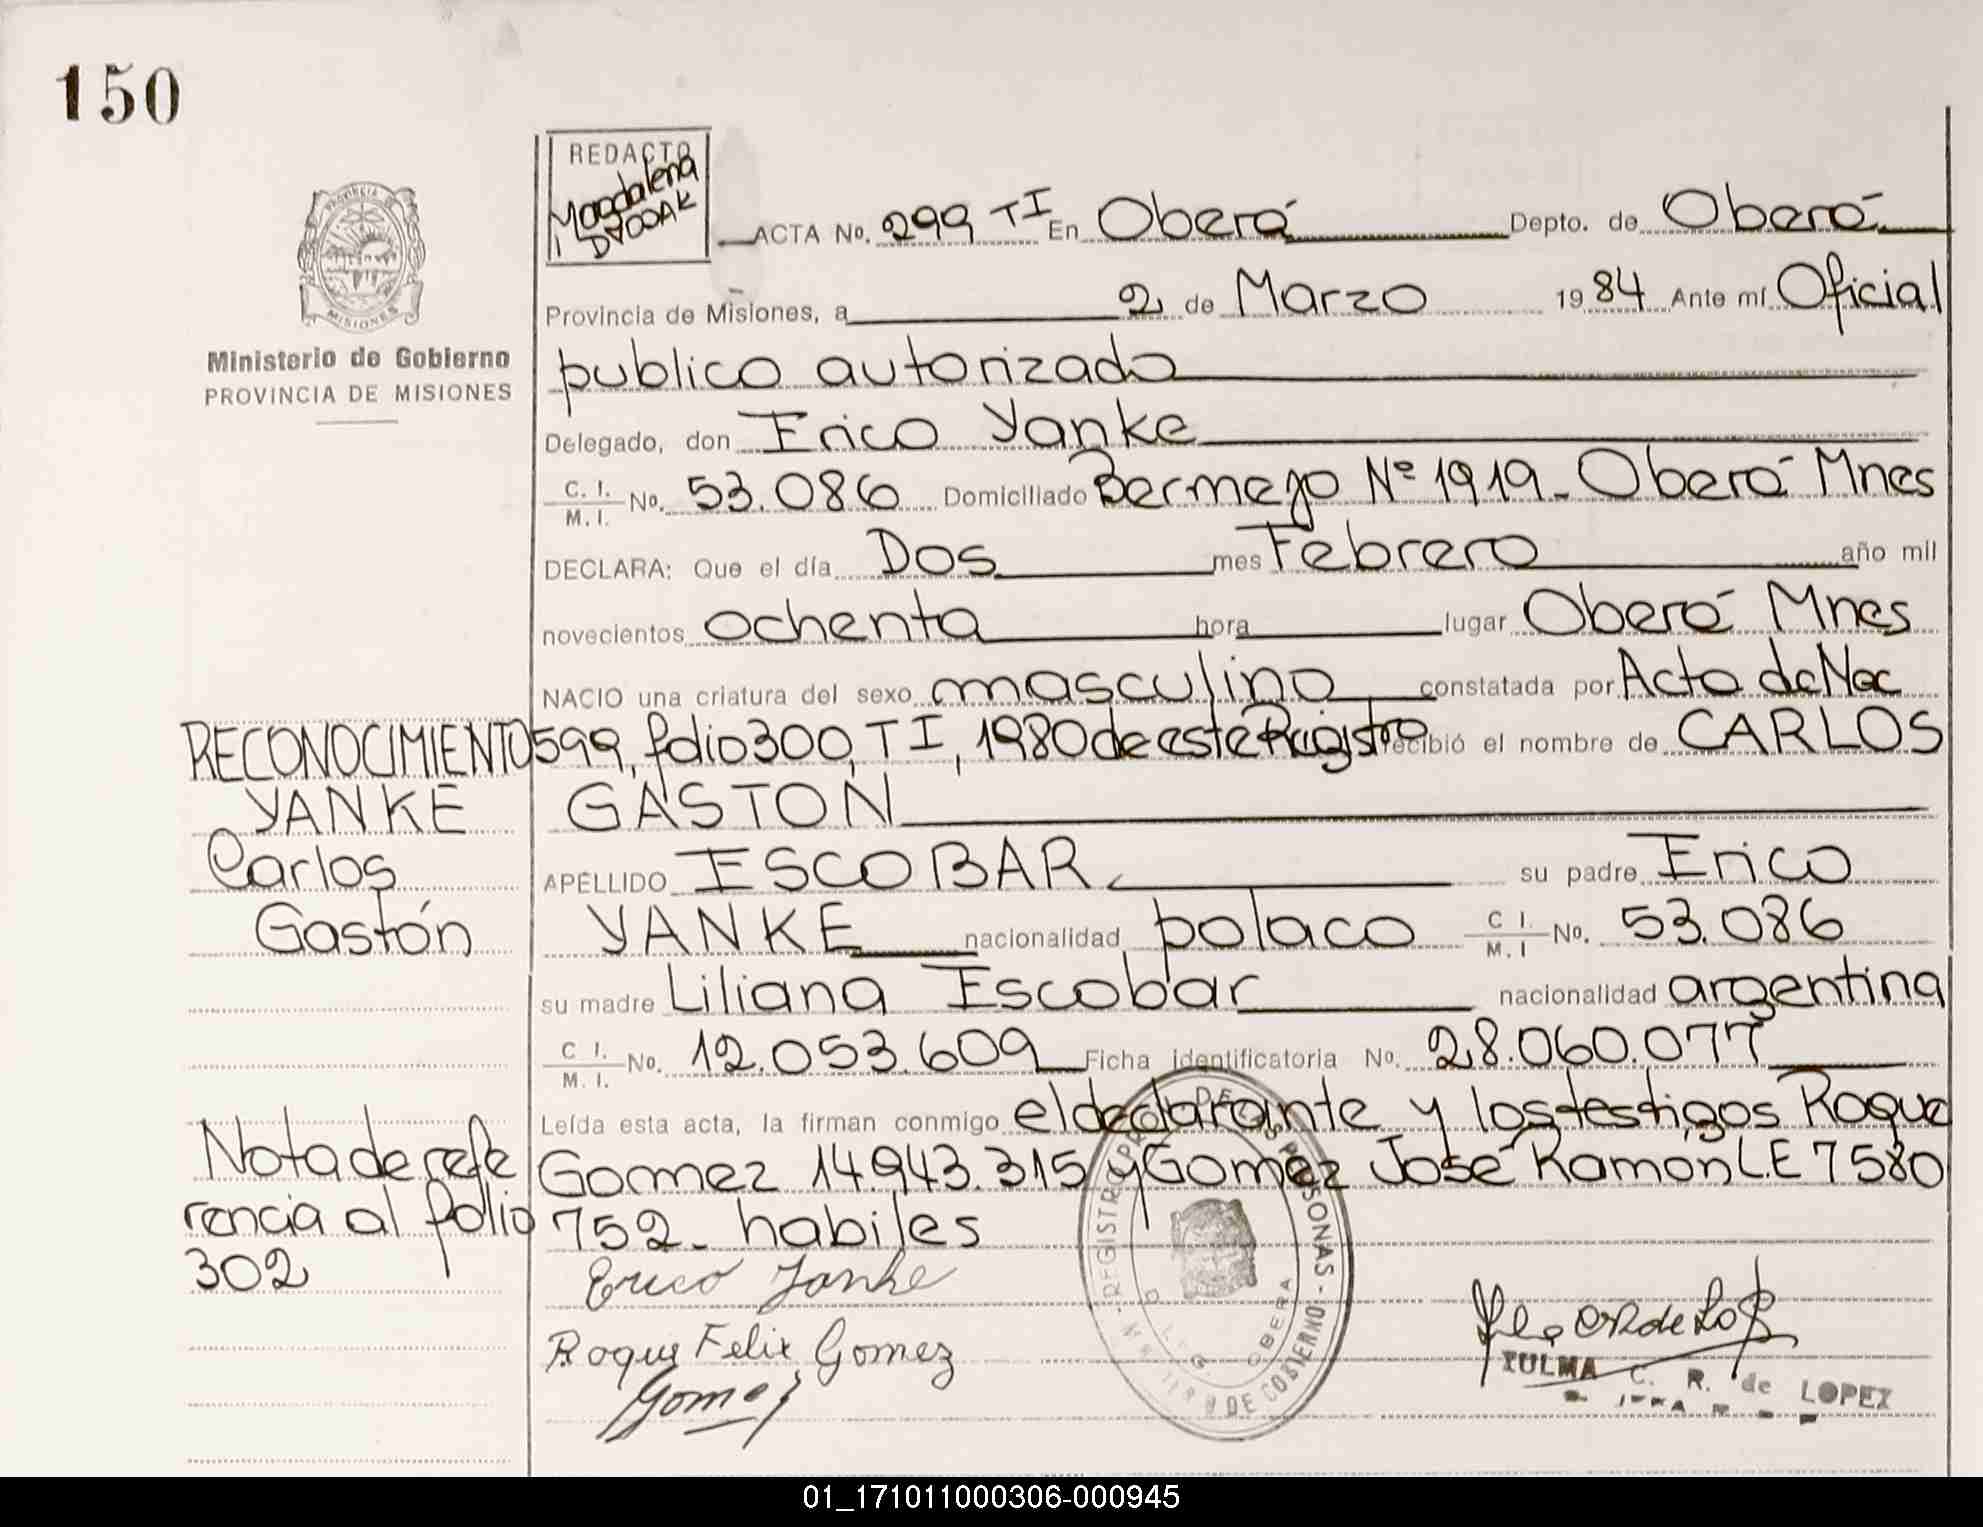 150
REDACTO
Magdalena
PROVINCIA DE
MISIONES
ACTA No. 299 TI En Oberá Depto. de Oberá
Provincia de Misiones, a 2 de Marzo 1984 Ante mí Oficial
Ministerio de Gobierno
PROVINCIA DE MISIONES
publico autorizado
Delegado, don Erico Yanke
C. I. / M. I. No. 53.086 Domiciliado Bermejo Nº 1919 - Oberá Mnes
DECLARA: Que el día Dos mes Febrero año mil
novecientos ochenta hora lugar Oberá Mnes
NACIO una criatura del sexo masculino constatada por Acta de Nac
RECONOCIMIENTO
599, folio 300, TI, 1980 de este Registro recibió el nombre de CARLOS
YANKE
GASTON
Carlos
APELLIDO ESCOBAR su padre Erico
Gastón
YANKE nacionalidad polaco C I. / M. I No. 53.086
su madre Liliana Escobar nacionalidad argentina
C I. / M. I. No. 12.053.609 Ficha identificatoria No. 28.060.077
Leída esta acta, la firman conmigo el declarante y los testigos Roque
Nota de refe
Gomez 14.943.315 y Gomez José Ramón L.E 7580
rencia al folio
752 - habiles
302
Erico Yanke
Roque Felix Gomez
Gomez
REGISTRO PROV. DE LAS PERSONAS - MINISTERIO DE GOBIERNO
DELEG. OBERA
ZULMA C. R. de LOPEZ
01_171011000306-000945